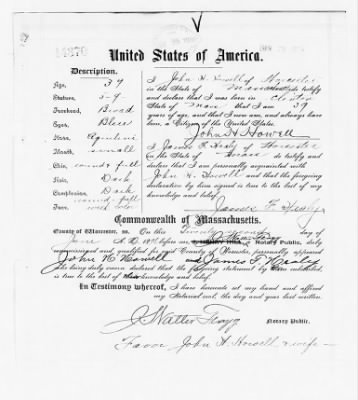 V
United States of America.
Description.
Age, 39
Stature, 5-9
Forehead, Broad
Eyes, Blue
Nose, Aquiline
Mouth, small
Chin, round & full
Hair, Dark
Complexion, Dark
Face,
I John H. Howell of Worcester
in the State of do testify
and declare that I was born in Clinton
State of Mass that I am 39
years of age, and that I now am, and always have
been, a Citizen of the United States.
John H Howell
I James F. Healy of Worcester
in the State of do testify and
declare that I am personally acquainted with
John H. Howell and that the foregoing
declaration by him signed is true to the best of my
knowledge and belief.
James F Healy
Commonwealth of Massachusetts.
County of Worcester, ss. On this Twenty second day of
June A. D. 18 before me, a Notary Public, duly
commissioned and qualified in said County of Worcester, personally appeared
John H Howell and James F. Healy
who being duly sworn declared that the foregoing statement by them subscribed,
is true to the best of their knowledge and belief.
In Testimony whereof, I have hereunto set my hand and affixed
my Notarial seal, the day and year last written.
J Walter Flagg
Notary Public.
Favor John H Howell & wife